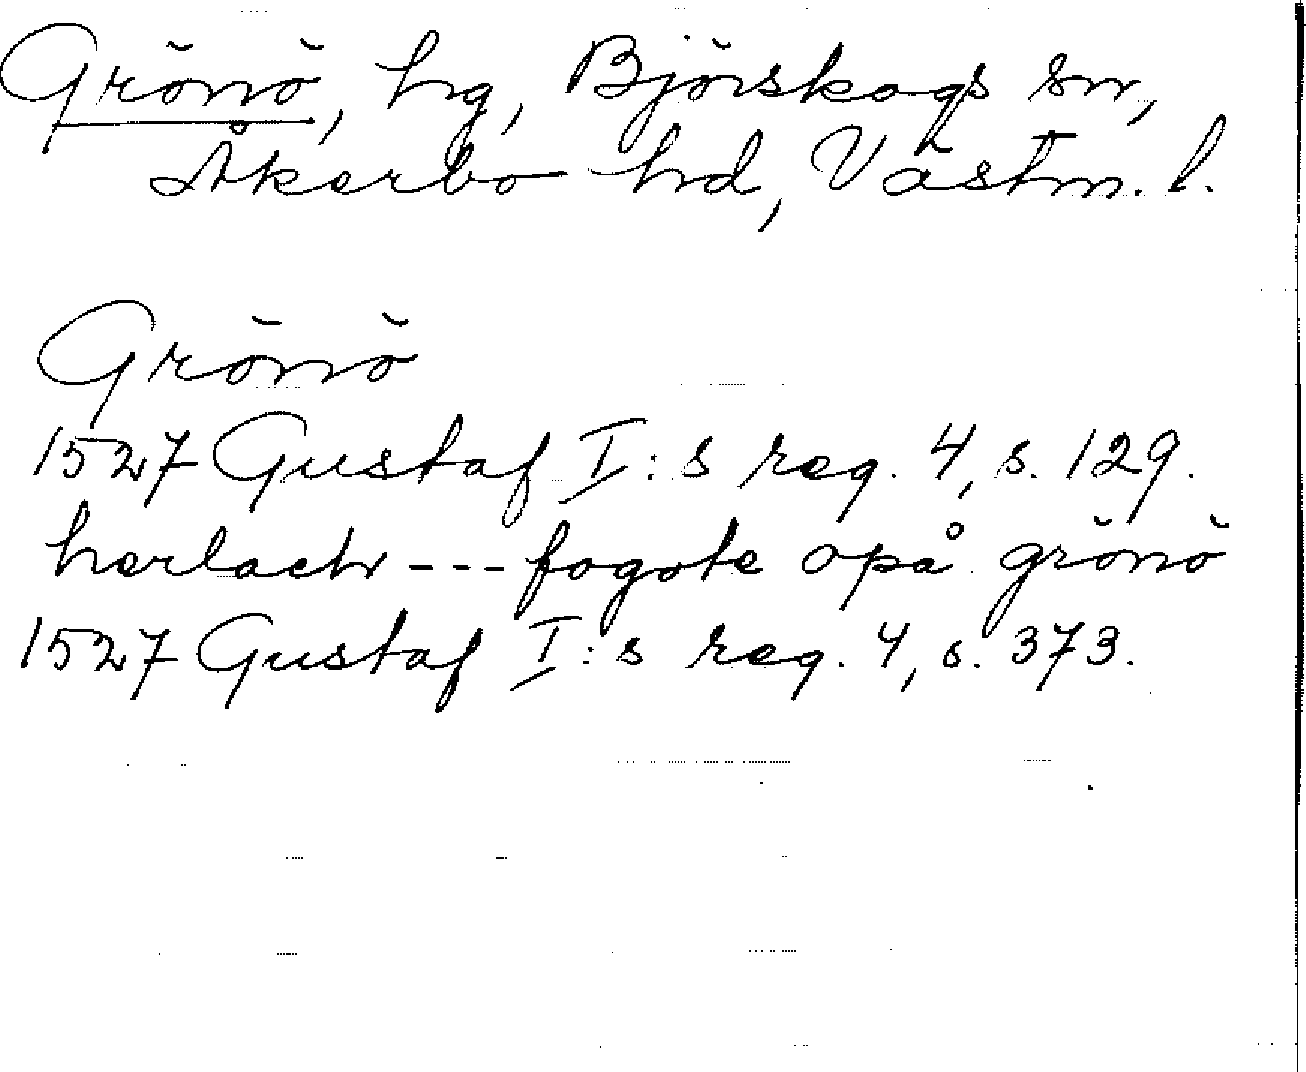 Grönö, hg, Björskogs sn,
Åkerbo hd, Västm. l.
Grönö
1527 Gustaf I:s reg. 4, s. 129.
herlach --- fogote opå grönö
1527 Gustaf I:s reg. 4, s. 373.